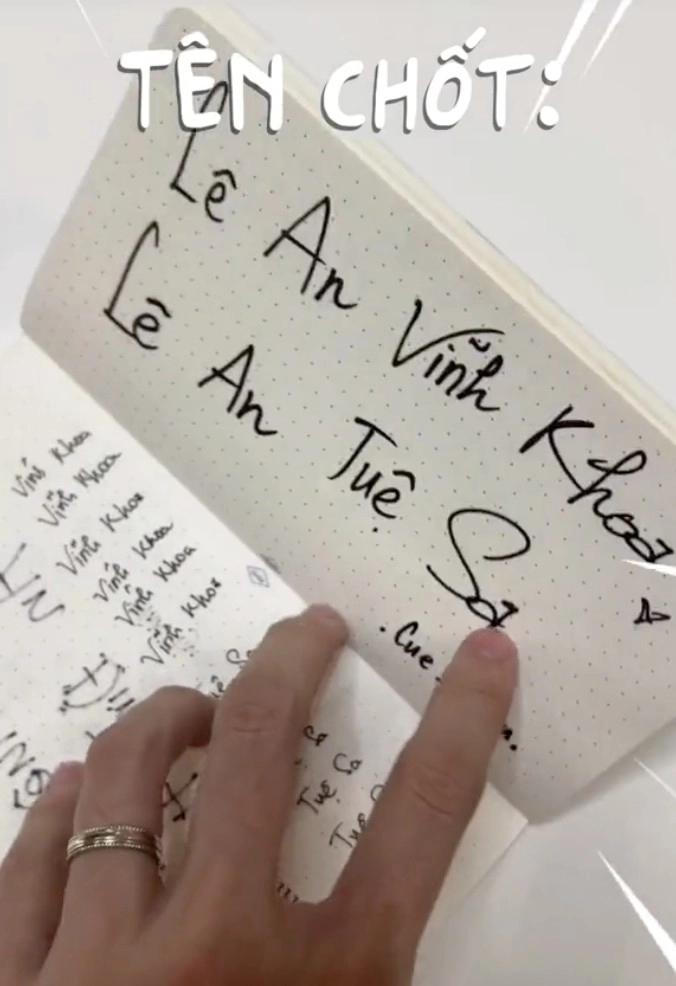 TÊN CHỐT:
Lê An Vĩnh Khoa
Lê An Tuệ Sa
Vĩnh Khoa
Vĩnh Khoa
Vĩnh Khoa
Vĩnh Khoa
Vĩnh Khoa
Vĩnh Khoa
Sa
Tuệ
Tuệ